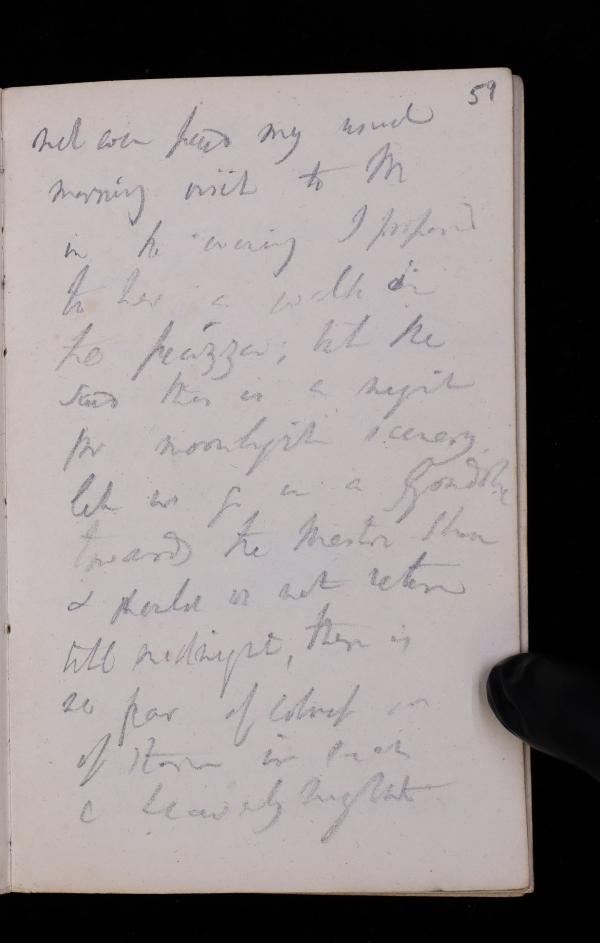 59
not even paid my usual
morning visit to M
in the evening I proposed
to her a walk in
the piazza; but she
said this is a night
for moonlight scenery
let us go in a Gondola
towards the Mestre Shore
& should we not return
till midnight, there is
no fear of
of storm in such
a heavenly night